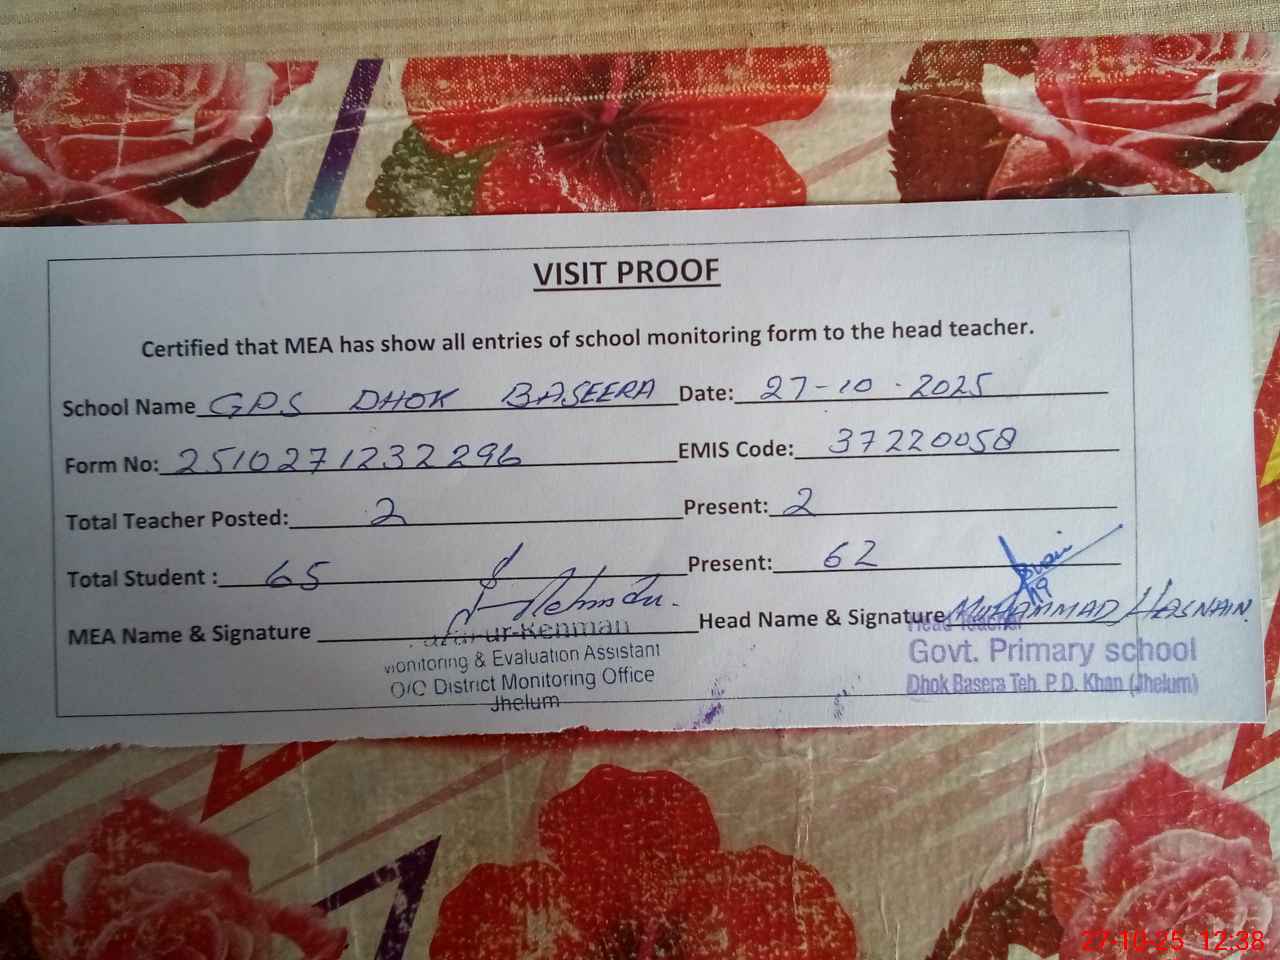 VISIT PROOF
Certified that MEA has show all entries of school monitoring form to the head teacher.
School Name GPS DHOK BASEERA Date: 27-10-2025
Form No: 2510271232296 EMIS Code: 37220058
Total Teacher Posted: 2 Present: 2
Total Student : 65 Present: 62
MEA Name & Signature Head Name & Signature MUHAMMAD HASNAIN
ur-Rehman
Monitoring & Evaluation Assistant
O/O District Monitoring Office
Jhelum
Head Teacher
Govt. Primary school
Dhok Basera Teh. P.D. Khan (Jhelum)
27-10-25 12:38